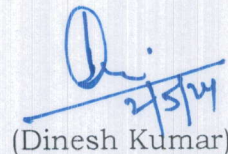 2/5/24
(Dinesh Kumar)